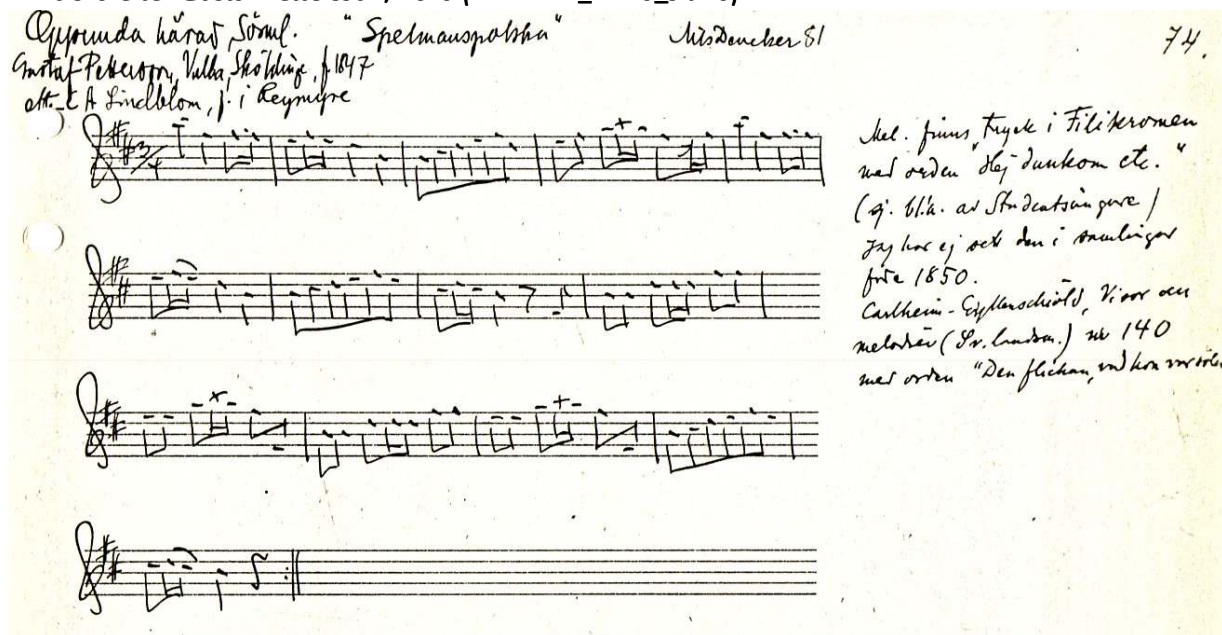 Oppunda härad, Sörml. "Spelmanspolska" Nils Dencker 81 74.
Gustaf Pettersson, Valla, Sköldinge, f. 1847
eft. C A Lindblom, f. i Reymyre
3/4
Mel. finns tryck i Filikromen
med orden "Hej dunkom etc."
(sj. bl.a. av Studentsångare)
Jag har ej sett den i samlingar
före 1850.
Carlheim-Gyllensköld, Visor och
melodier (Sv. landsm.) nr 140
med orden "Den flickan, vad hon var